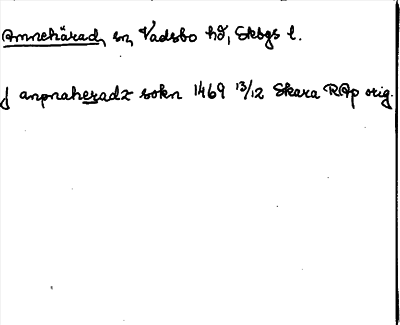 Amnehärad, sn, Vadsbo hd, Skbgs l.
J anpnaheradz sokn 1469 13/12 Skara RAp orig.